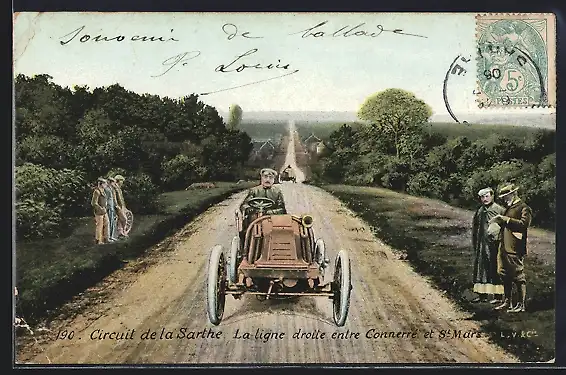 Souvenir de ballade
P. Louis
5c
POSTES
190. Circuit de la Sarthe. La ligne droite entre Connerré et St Mars. L.V.&Cie